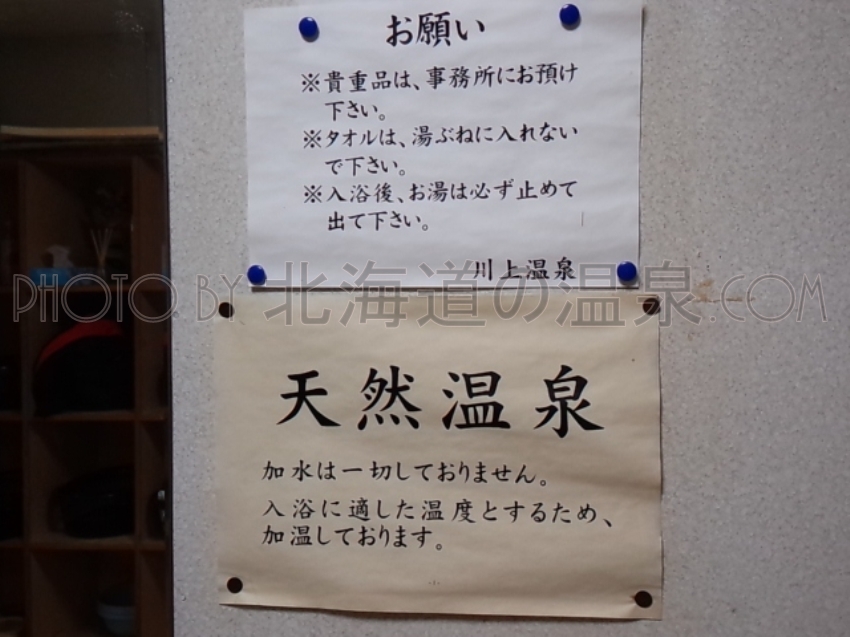 お願い
※貴重品は、事務所にお預け
下さい。
※タオルは、湯ぶねに入れない
で下さい。
※入浴後、お湯は必ず止めて
出て下さい。
川上温泉
PHOTO BY 北海道の温泉.COM
天然温泉
加水は一切しておりません。
入浴に適した温度とするため、
加温しております。